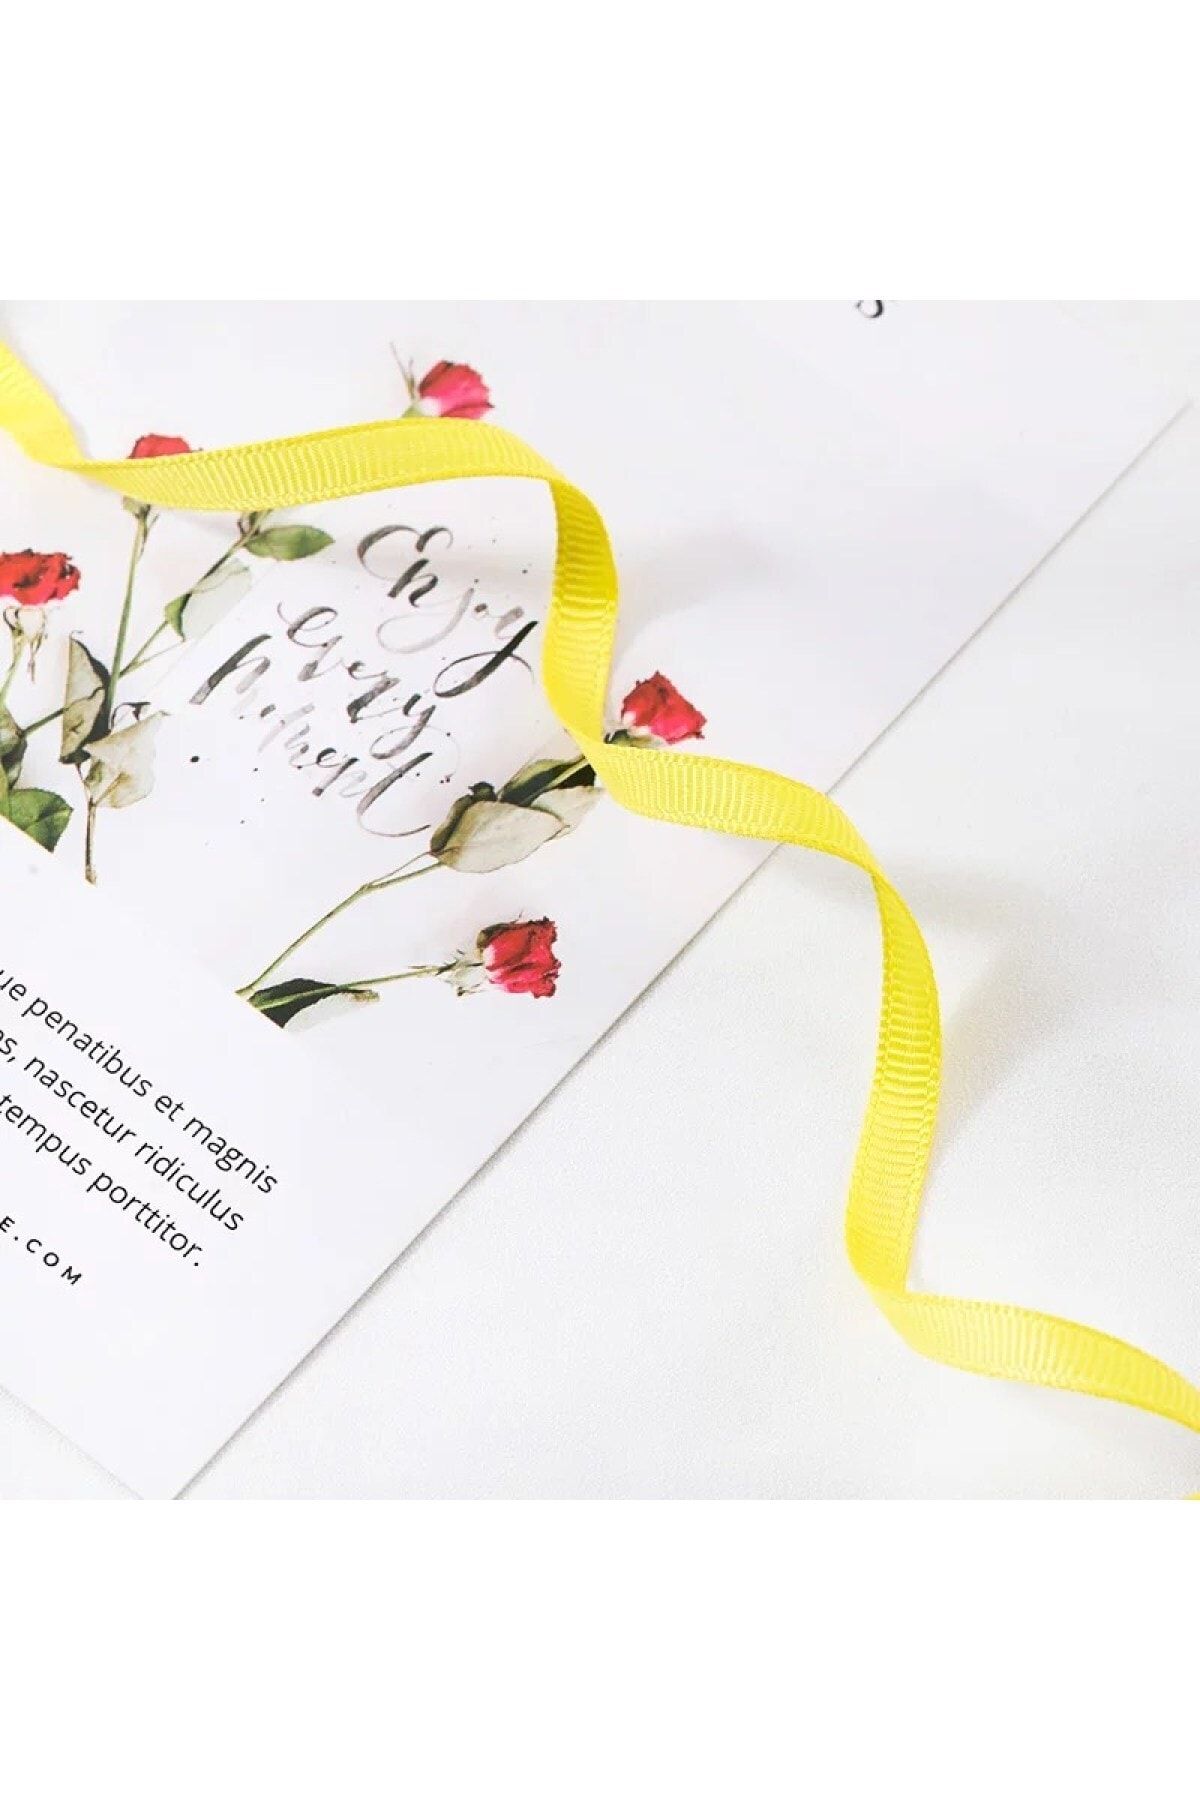 Enjoy
every
moment
penatibus et magnis
nascetur ridiculus
tempus porttitor.
E.COM